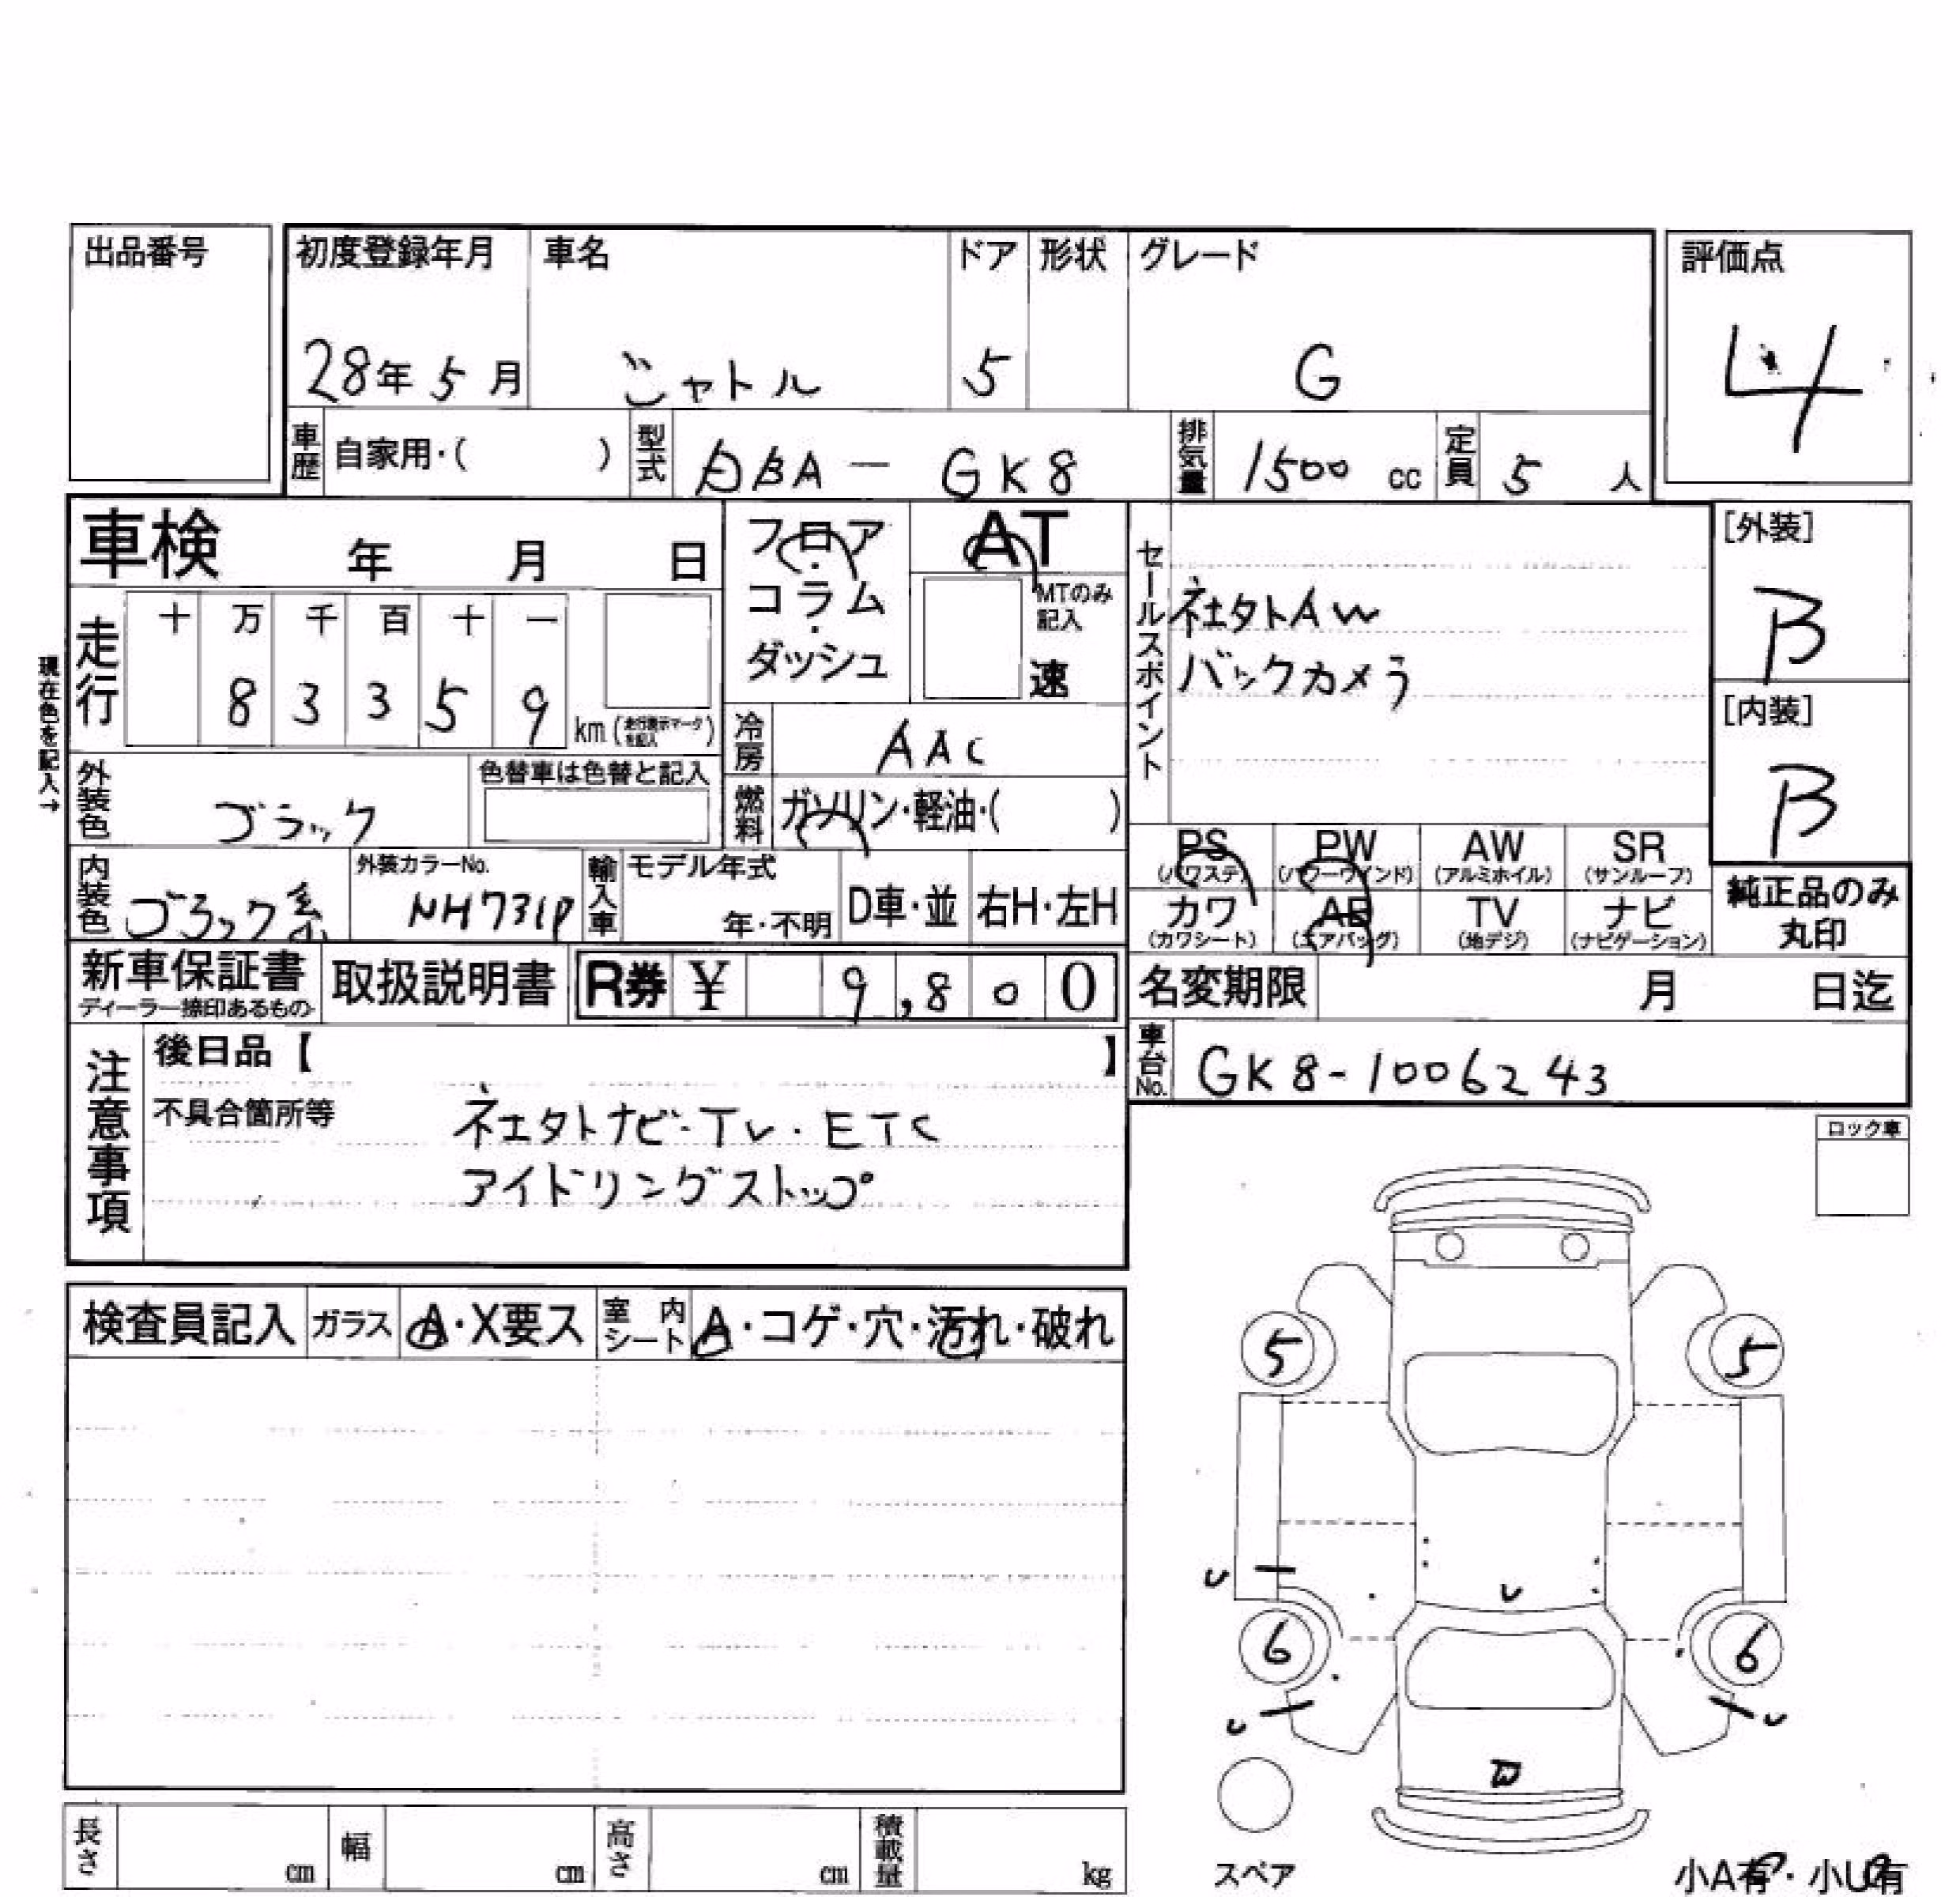 出品番号
初度登録年月 車名 ドア 形状 グレード
28年5月 シャトル 5 G
評価点
4
車歴 自家用・( ) 型式 DBA-GK8 排気量 1500 cc 定員 5 人
車検 年 月 日
フロア・コラム・ダッシュ
AT
MTのみ記入
速
走行
十 万 千 百 十 一
8 3 3 5 9 km (走行表示マークを記入)
現在色を記入→
冷房 AAC
燃料 ガソリン・軽油・( )
外装色 ブラック
色替車は色替と記入
内装色 ブラック系
外装カラーNo.
NH731P
輸入車 モデル年式
年・不明 D車・並 右H・左H
セールスポイント
社外AW
バックカメラ
[外装]
B
[内装]
B
PS PW AW SR
(パワステ) (パワーウインド) (アルミホイル) (サンルーフ)
カワ AB TV ナビ
(カワシート) (エアバッグ) (地デジ) (ナビゲーション)
純正品のみ
丸印
新車保証書
ディーラー捺印あるもの
取扱説明書
R券 ¥ 9,800
名変期限 月 日迄
車台No. GK8-1006243
注意事項
後日品【 】
不具合箇所等
社外ナビ・TV・ETC
アイドリングストップ
ロック車
検査員記入 ガラス A・X要ス 室内シート A・コゲ・穴・汚れ・破れ
5 5
U
U
6 6
U U
スペア
小A有・小U有
長さ cm 幅 cm 高さ cm 積載量 kg